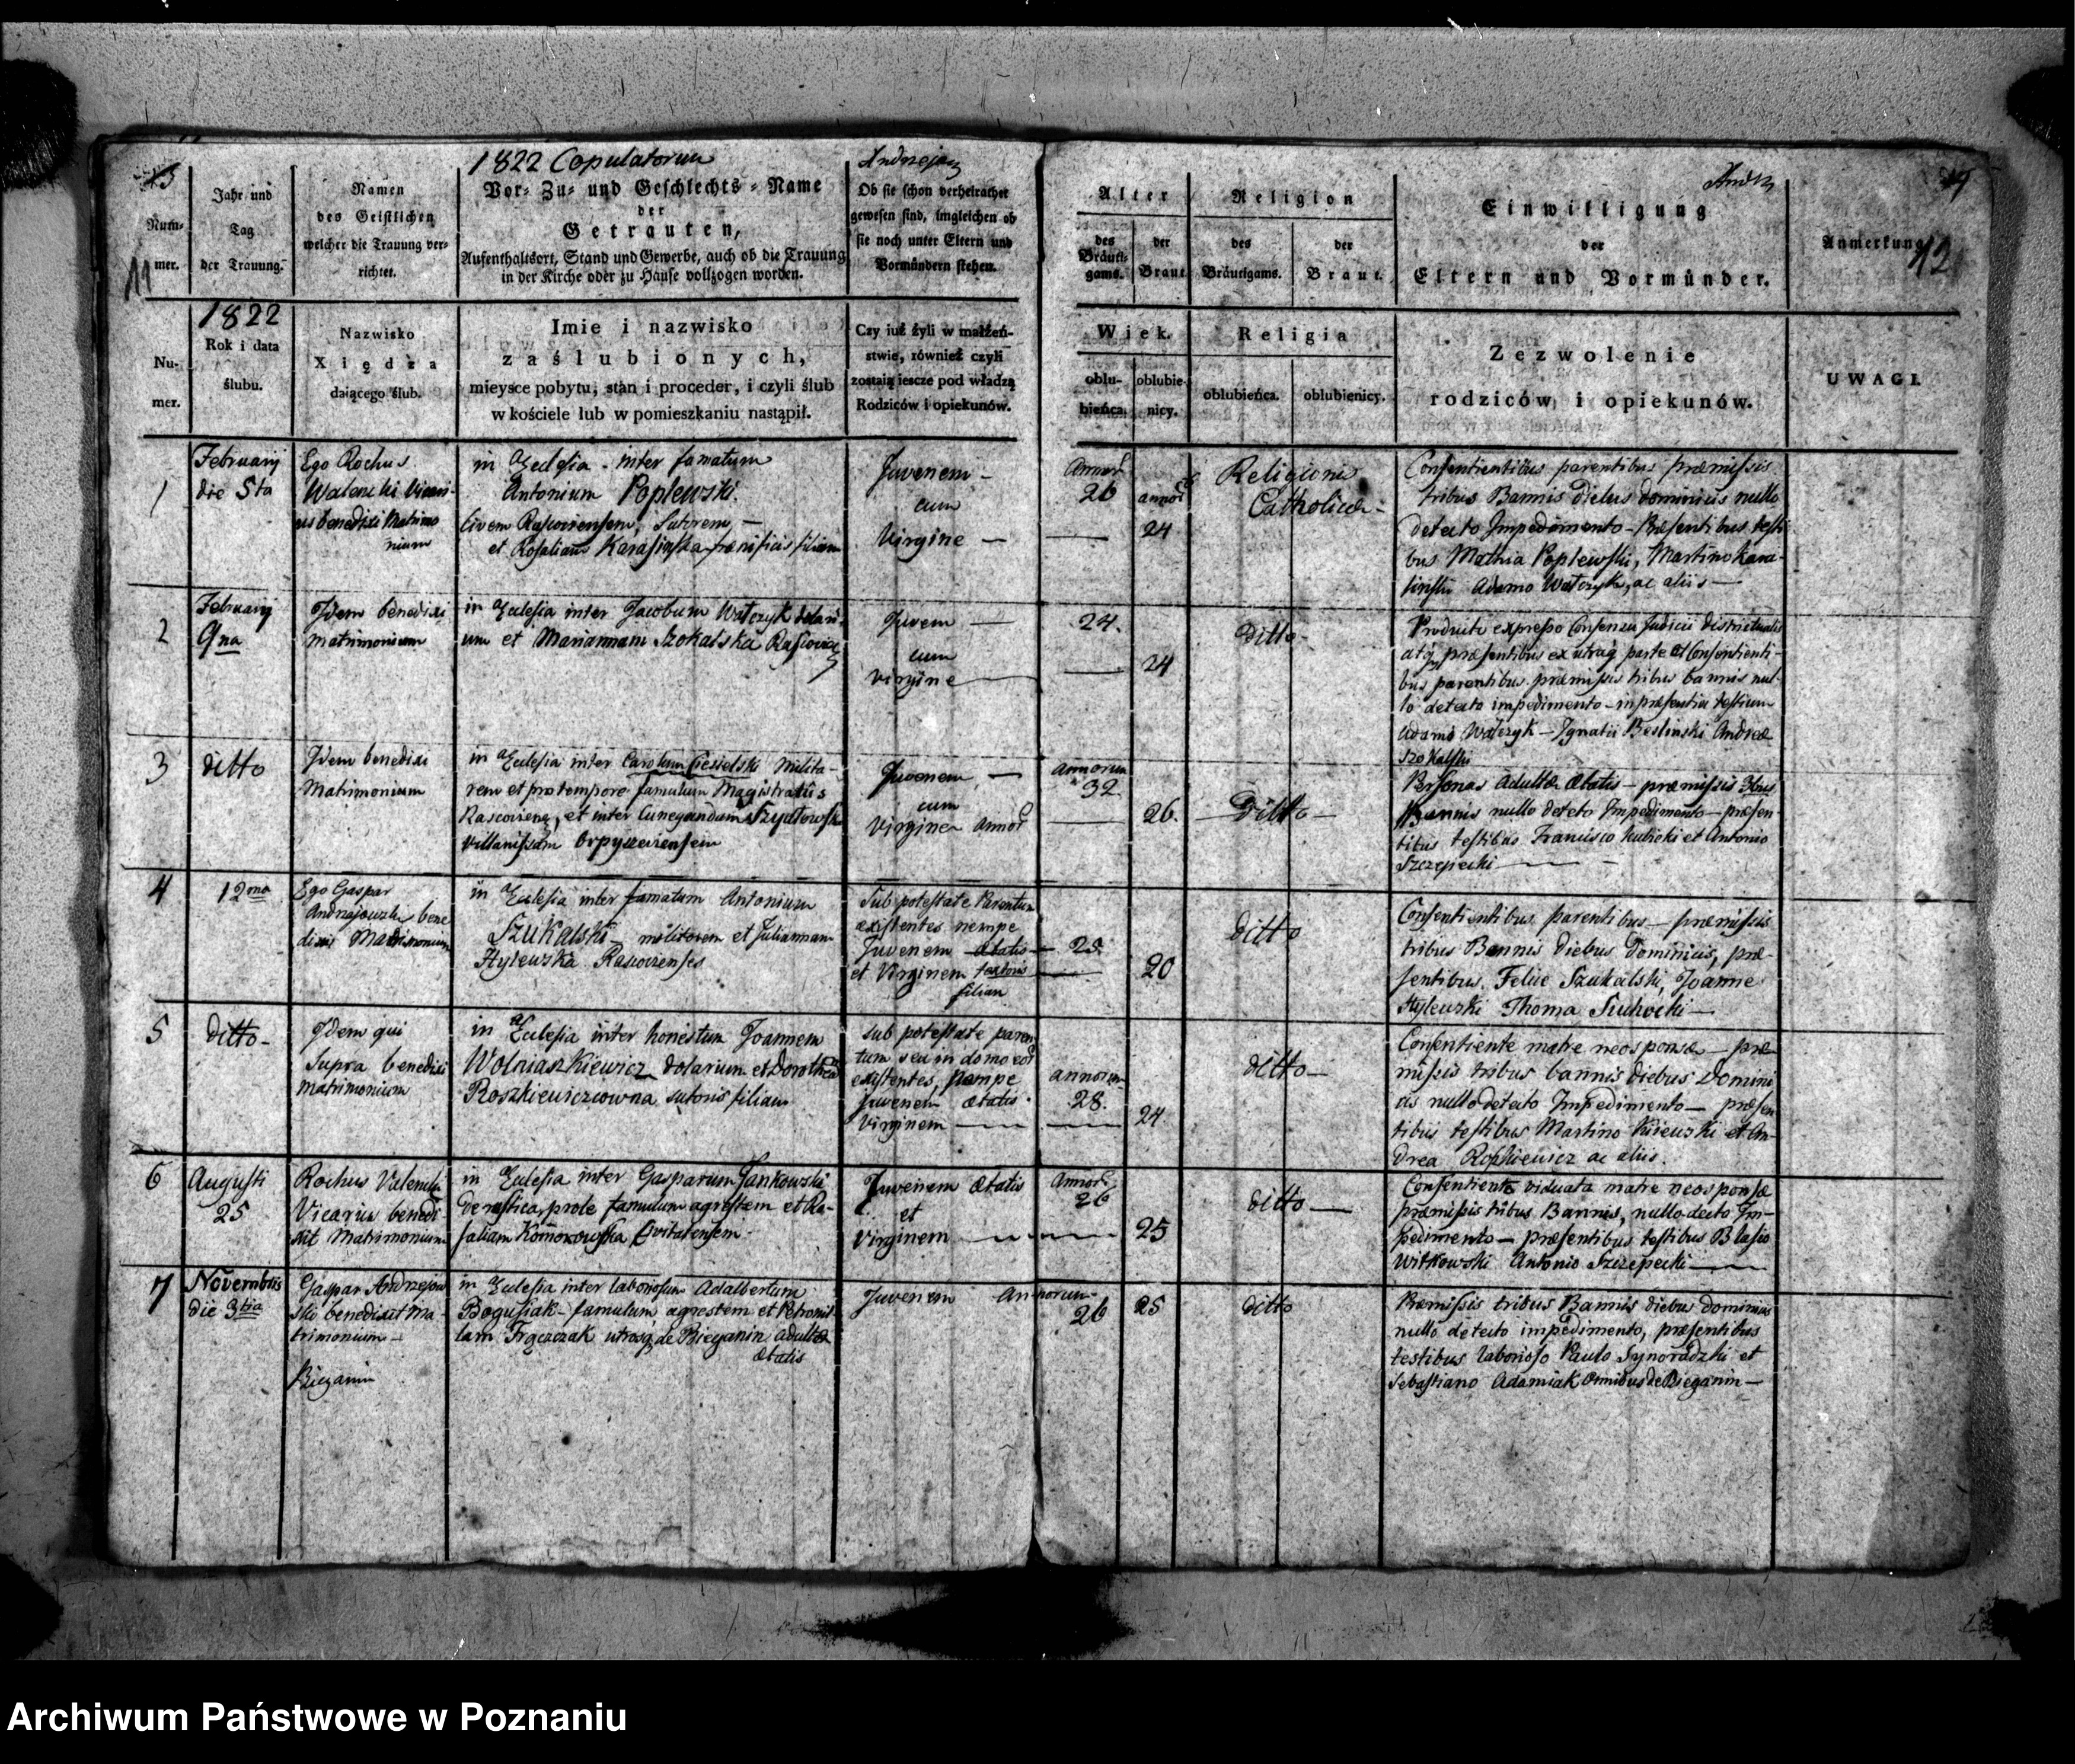 1822 Copulatorum
13
Num-
mer.
11
Jahr und
Tag
der Trauung.
Namen
des Geistlichen
welcher die Trauung ver-
richtet.
Vor- Zu- und Geschlechts-Name
der
Getrauten,
Aufenthaltsort, Stand und Gewerbe, auch ob die Trauung
in der Kirche oder zu Hause vollzogen worden.
Ob sie schon verheirathet
gewesen sind, imgleichen ob
sie noch unter Eltern und
Vormündern stehen.
Alter
des
Bräuti-
gams.
der
Braut.
Religion
des
Bräutigams.
der
Braut.
Einwilligung
der
Eltern und Vormünder.
Anmerkung
12
Nu-
mer.
1822
Rok i data
ślubu.
Nazwisko
Xiędza
daiącego ślub.
Imie i nazwisko
zaślubionych,
mieysce pobytu, stan i proceder, i czyli ślub
w kościele lub w pomieszkaniu nastąpił.
Czy iuż żyli w małżeń-
stwie, również czyli
zostaią iescze pod władzą
Rodziców i opiekunów.
Wiek.
oblu-
bieńca.
oblubie-
nicy.
Religia
oblubieńca.
oblubienicy.
Zezwolenie
rodziców i opiekunów.
UWAGI.
1
Februarij
die 5ta
Ego Rochus
Walencki Vicari-
us benedixi Matrimo
nium
in Ecclesia inter famatum
Antonium Poplewski
Civem Rascoviensem, Sutorem,
et Rosaliam Karasinska filiam
Juvenem
cum
Virgine
Annor
26
annor
24
Religionis
Catholicae
Consentientibus parentibus praemissis
tribus Bannis diebus dominicis nullo
detecto Impedimento - Praesentibus testi
bus Mathia Poplewski, Martino Kara-
sinski Adamo Watczyk, ac aliis
2
Februarij
9na
Idem benedixi
Matrimonium
in Ecclesia inter Jacobum Watczyk dolari-
um et Mariannam Szokalska
Juvem
cum
virgine
24.
24
ditto
Producto expresso Consensu Judicii districtualis
atq praesentibus ex utraq parte et Consentienti-
bus parentibus praemissis tribus bannis nul-
lo detecto impedimento - in praesentia testium
Adami Watczyk - Ignatii Andreae
Szokalski
3
ditto
Idem benedixi
Matrimonium
in Ecclesia inter Carolum Ciesielski milita-
rem et pro tempore famulum Magistratus
et inter Cunegundam
villanissam
Juvenem
cum
Virgine annor
annorum
32.
26.
Ditto
Personas Adultae aetatis - praemissis 3bus
Bannis nullo detecto Impedimento - praesen-
tibus testibus Francisco Kubicki et Antonio
Szczepecki
4
12ma
Ego Gaspar
Andrzejowski bene
dixi Matrimonium
in Ecclesia inter famatum Antonium
Szukalski - molitorem et Juliannam
Hylewska
Sub potestate Parentum
existentes nempe
Juvenem aetatis
et Virginem textoris
filiam
20
ditto
Consentientibus parentibus - praemissis
tribus Bannis diebus Dominicis, prae-
sentibus Felice Szukalski, Joanne
Hylewski Thoma
5
ditto
Idem qui
Supra benedixi
matrimonium
in Ecclesia inter honestum Joannem
Wolniaszkiewicz dolarium et Dorothea
Roszkiewiczowna sutoris filiam
sub potestate paren
tum seu in domo eor
existentes, nempe
Juvenem aetatis
Virginem
annorum
28.
24.
ditto
Consentiente matre neosponsae - prae
missis tribus bannis diebus Domini
cis nullo detecto Impedimento - praesen
tibus testibus Martino et An-
drea Roszkiewicz ac aliis.
6
Augusti
25
Rochus Valencki
Vicarius benedi
xit Matrimonium
in Ecclesia inter Gasparum Jankowski
famulum agrestem et Ro-
saliam Komorowska Civitatensem
Juvenem aetatis
et
Virginem
Annor
26
25
ditto
Consentiente viduata matre neosponsae
praemissis tribus Bannis, nullo detecto Im-
pedimento - praesentibus testibus Blasio
Witkowski Antonio Szczepecki
7
Novembris
die 3tia
Gaspar Andrzejow
ski benedixit Ma-
trimonium -
Bieganin
in Ecclesia inter laboriosum Adalbertum
Bogusiak - famulum agrestem et Petronil
lam utrosq de Bieganin adultae
aetatis
Juvenem
Annorum
26
25
ditto
Praemissis tribus Bannis diebus dominicis
nullo detecto impedimento, praesentibus
testibus laborioso Paulo Synoradzki et
Sebastiano Adamiak omnibus de Bieganin
Archiwum Państwowe w Poznaniu